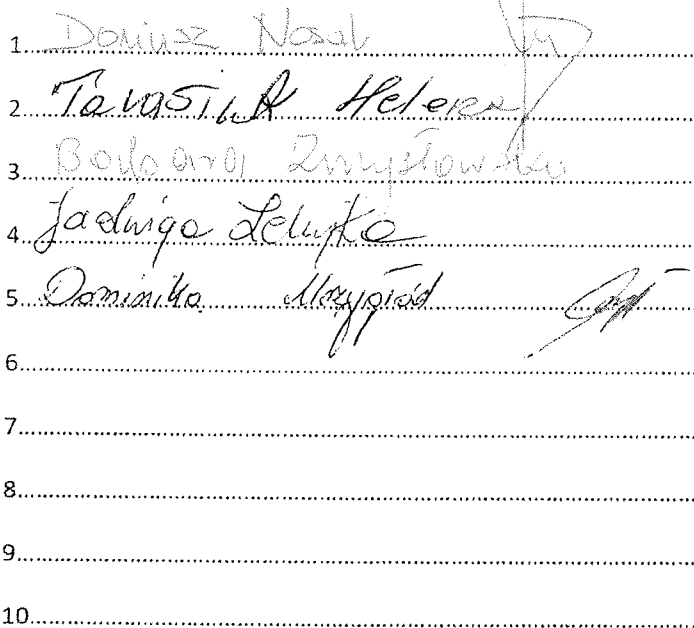 1. Dariusz Nosal
2. Tarasiuk Helena
3. Barbara Zmysłowska
4. Jadwiga
5. Dominika Mozygłód
6.
7.
8.
9.
10.